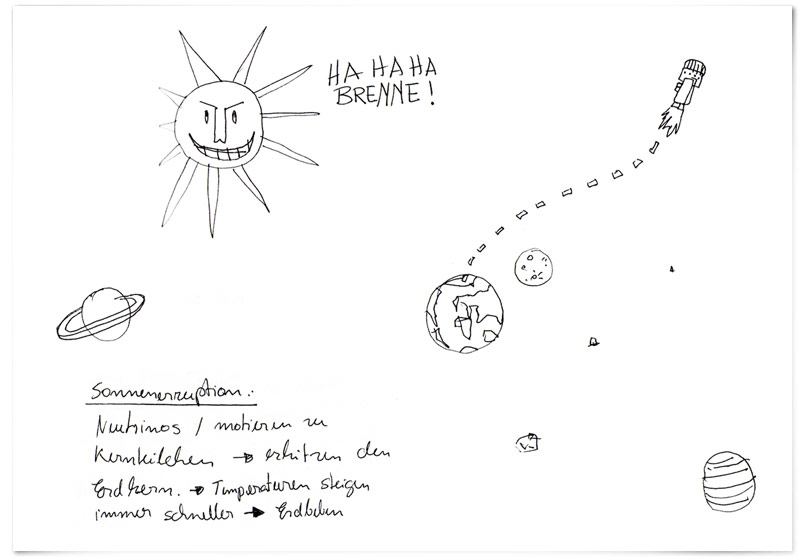 HA HA HA
BRENNE!
Sonnenerruption:
Neutrinos / motieren zu
Kernteilchen → erhitzen den
Erdkern. → Temperaturen steigen
immer schneller → Erdbeben